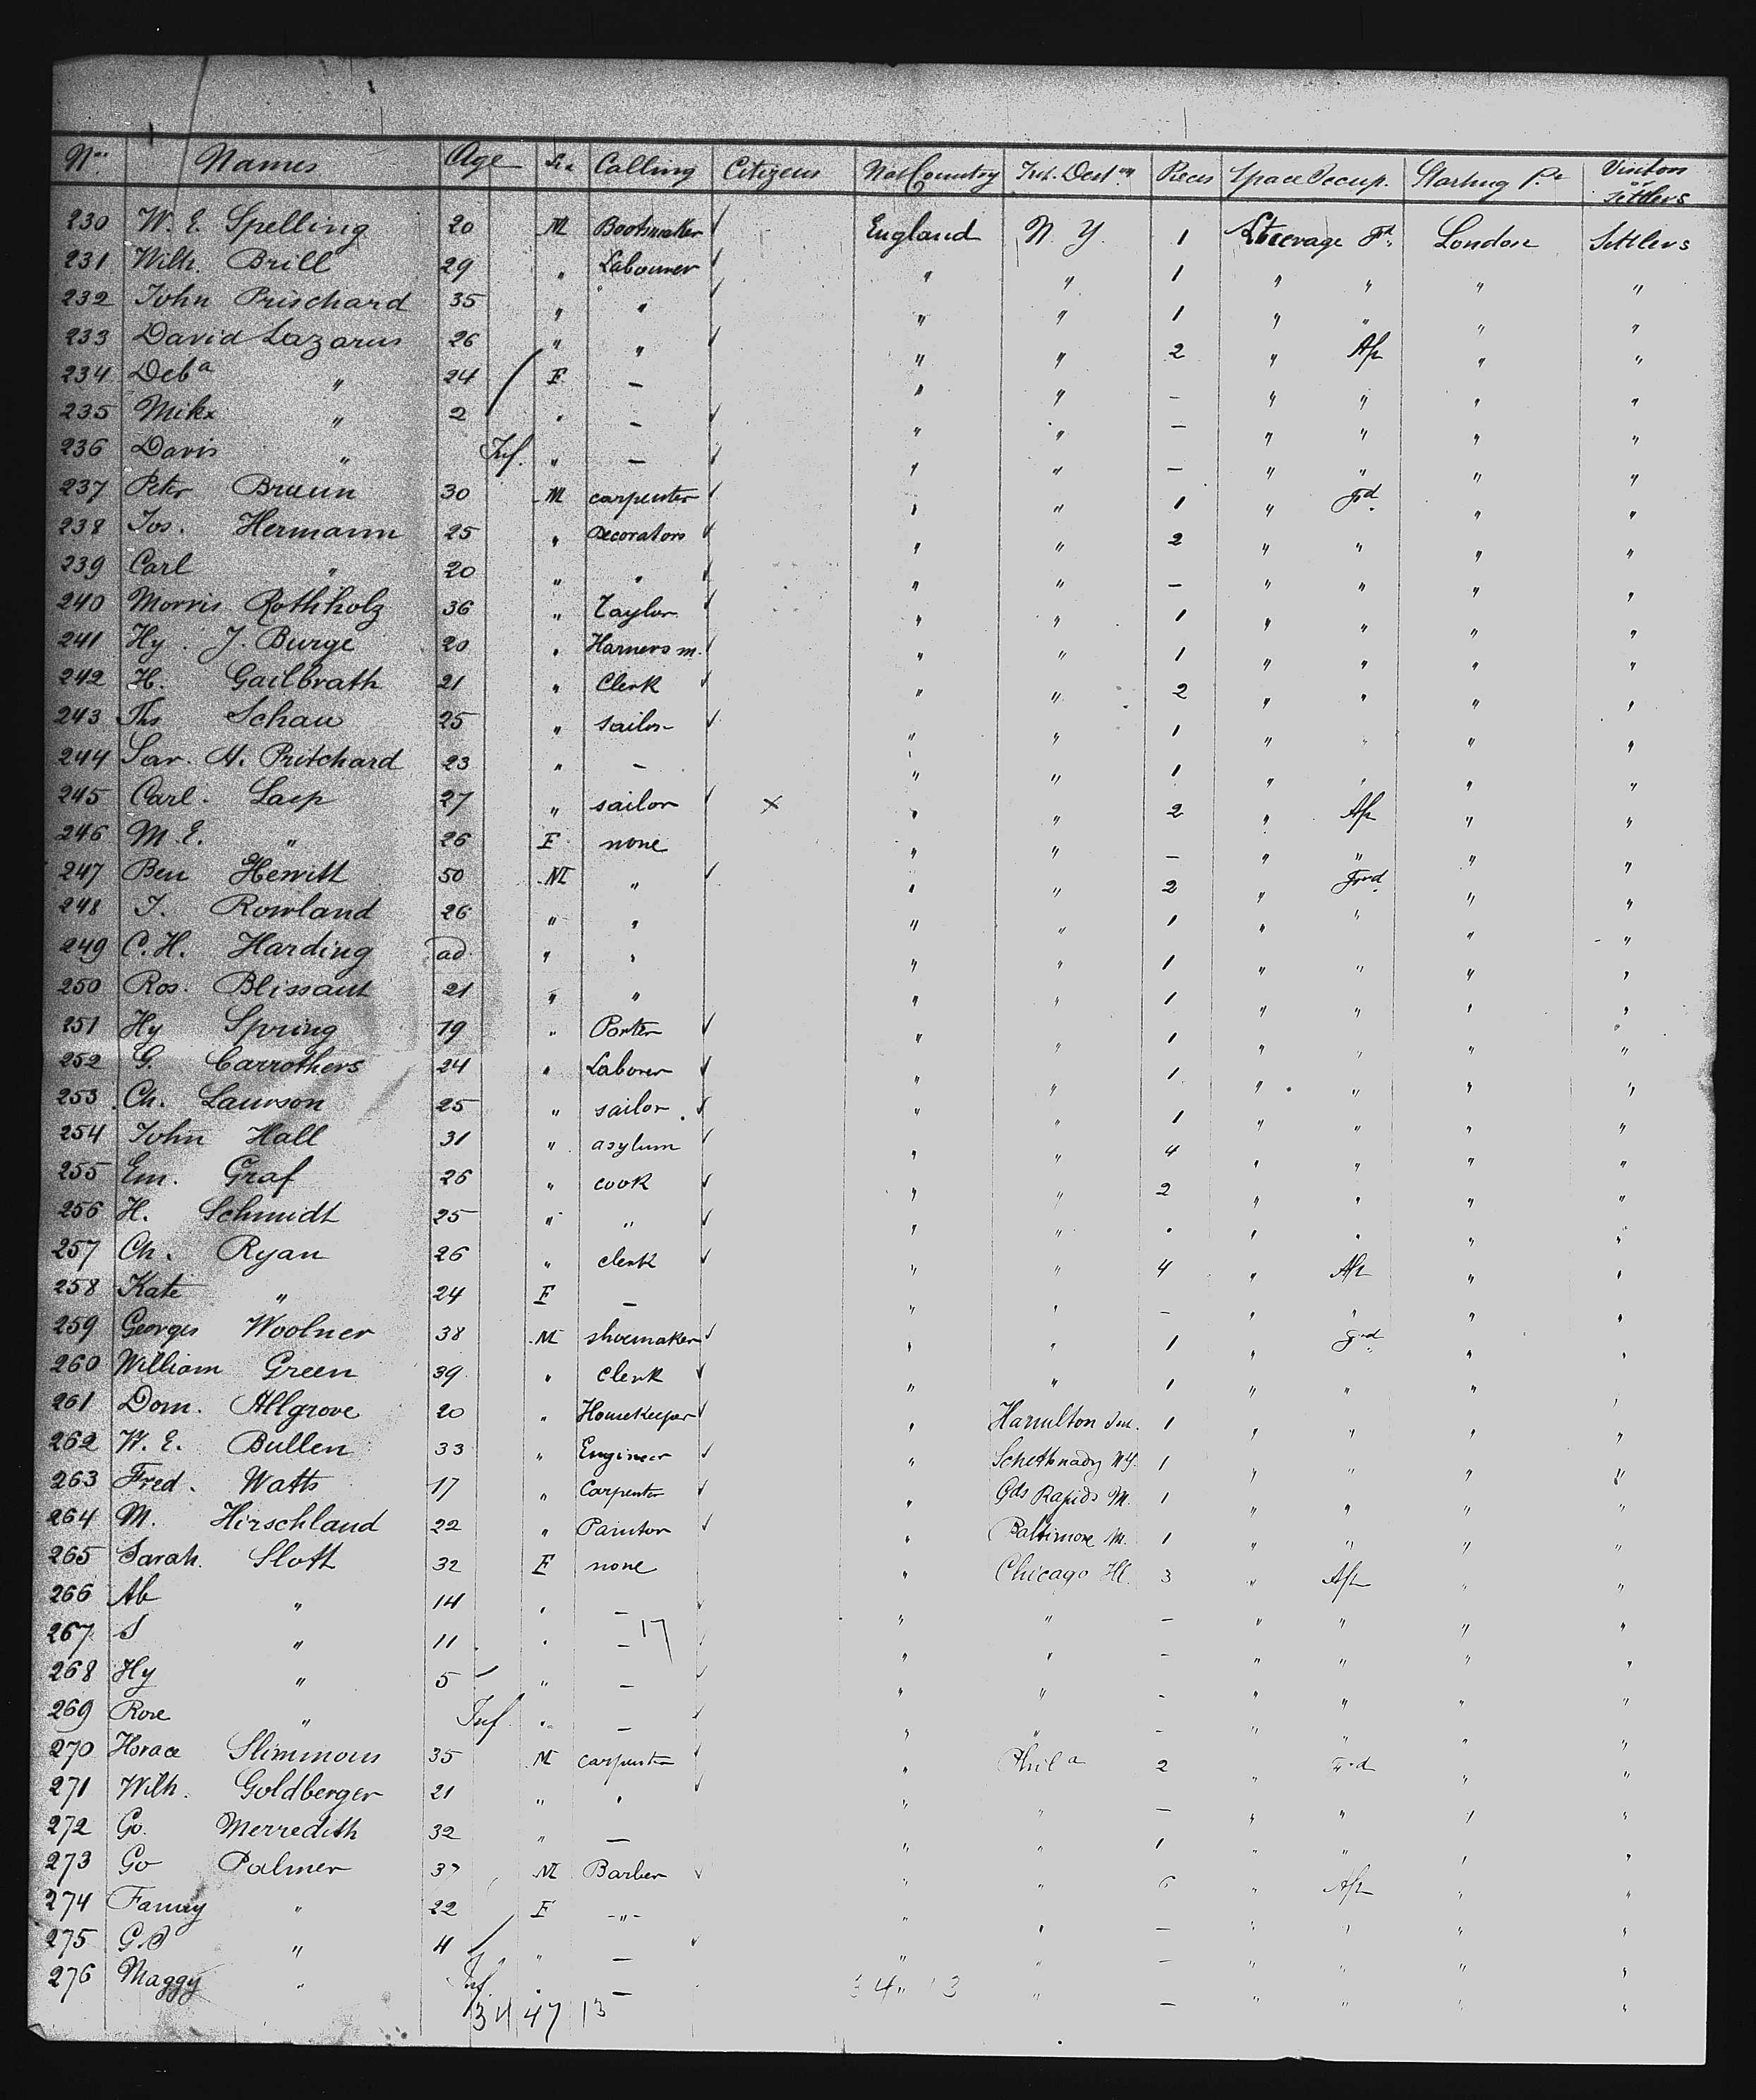 Nos. Names Age Sex Calling Citizens Nat Country Int. Destn Pieces Space Occup. Starting Pt Visitors or Settlers
230 W. E. Spelling 20 M Bootmaker ✓ England N. Y. 1 Steerage Fd. London Settlers
231 Wilh. Brill 29 " Labourer ✓ " " 1 " " " "
232 John Prischard 35 " " ✓ " " 1 " " " "
233 David Lazarus 26 " " ✓ " " 2 " Aft " "
234 Deba " 24 F — " " — " " " "
235 Mike " 2 " — ✓ " " — " " " "
236 Davis " Inf. " — ✓ " " — " " " "
237 Peter Braun 30 M carpenter ✓ " " 1 " Fd. " "
238 Jos. Hermann 25 " Decorators ✓ " " 2 " " " "
239 Carl " 20 " " ✓ " " — " " " "
240 Morris Rothholz 36 " Taylor ✓ " " 1 " " " "
241 Hy. J. Burge 20 " Harness m. ✓ " " 1 " " " "
242 H. Gailbrath 21 " Clerk ✓ " " 2 " " " "
243 Ths Schau 25 " sailor ✓ " " 1 " " " "
244 Sar. H. Pritchard 23 " — " " 1 " " " "
245 Carl. Lasp 27 " sailor ✓ x " " 2 " Aft " "
246 M. E. " 26 F none " " — " " " "
247 Ben Hewitt 50 M " ✓ " " 2 " Frd. " "
248 J. Rowland 26 " " " " 1 " " " "
249 C. H. Harding ad " " " " 1 " " " "
250 Ros. Blissaut 21 " " " " 1 " " " "
251 Hy Spring 19 " Porter ✓ " " 1 " " " "
252 G. Carrothers 24 " Laborer ✓ " " 1 " " " "
253 Ch. Lawson 25 " sailor ✓ " " 1 " " " "
254 John Hall 31 " asylum ✓ " " 4 " " " "
255 Em. Graf 26 " cook ✓ " " 2 " " " "
256 H. Schmidt 25 " " ✓ " " " " " " "
257 Ch. Ryan 26 " clerk ✓ " " 4 " Aft " "
258 Kate " 24 F — " " — " " " "
259 Georges Woolner 38 M shoemaker ✓ " " 1 " Frd. " "
260 William Green 39 " clerk ✓ " " 1 " " " "
261 Dom. Allgrove 20 " Housekeeper ✓ " Hamilton 1 " " " "
262 W. E. Bullen 33 " Engineer ✓ " Schethnady NY. 1 " " " "
263 Fred. Watts 17 " Carpenter ✓ " Gds Rapids M. 1 " " " "
264 M. Hirschland 22 " Paintor ✓ " Baltimore M. 1 " " " "
265 Sarah. Slott 32 F none " Chicago Ill. 3 " Aft " "
266 Ab " 14 " — ✓ " " — " " " "
267 S " 11 " — 17 ✓ " " — " " " "
268 Hy " 5 " — ✓ " " — " " " "
269 Rose " Inf. " — ✓ " " — " " " "
270 Horace Slimmous 35 M carpenter ✓ " Phila 2 " Frd " "
271 Wilh. Goldberger 21 " " ✓ " " — " " " "
272 Go. Merredith 32 " — " " 1 " " " "
273 Go Palmer M Barber ✓ " " 6 " Aft " "
274 Fanny " 22 F -"- " " — " " " "
275 " 4 " — ✓ " " — " " " "
276 Maggy " Inf. " — " " — " " " "
34 47 13